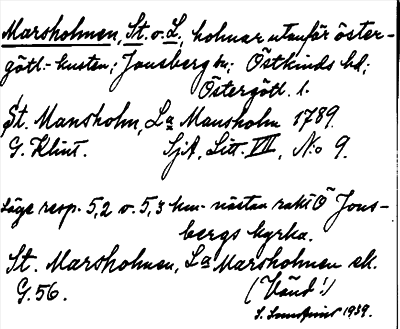 Marsholmen, St. o. L., holmar utanför öster-
götl.-kusten; Jonsberg sn; Östkinds hd;
Östergötl. l.
St. Mansholm, La Mansholm 1789.
G. Klint. SjA, Litt. VII, No 9.
Läge resp. 5,2 o. 5,3 km. nästan rakt Ö Jons-
bergs kyrka.
St. Marsholmen, La Marsholmen ek.
G. 56. (Vänd!)
S. 1939.